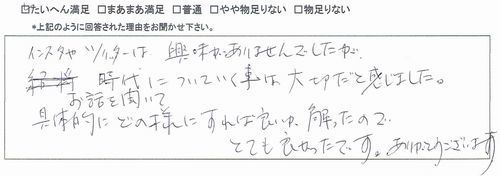 ☑たいへん満足 □まあまあ満足 □普通 □やや物足りない □物足りない
*上記のように回答された理由をお聞かせ下さい。
インスタや ツイッターは 興味がありませんでしたが、
時代に ついていく事は 大切だと感じました。
お話を聞いて
具体的に どの様に すれば良いか 解ったので
とても 良かったです。ありがとうございます